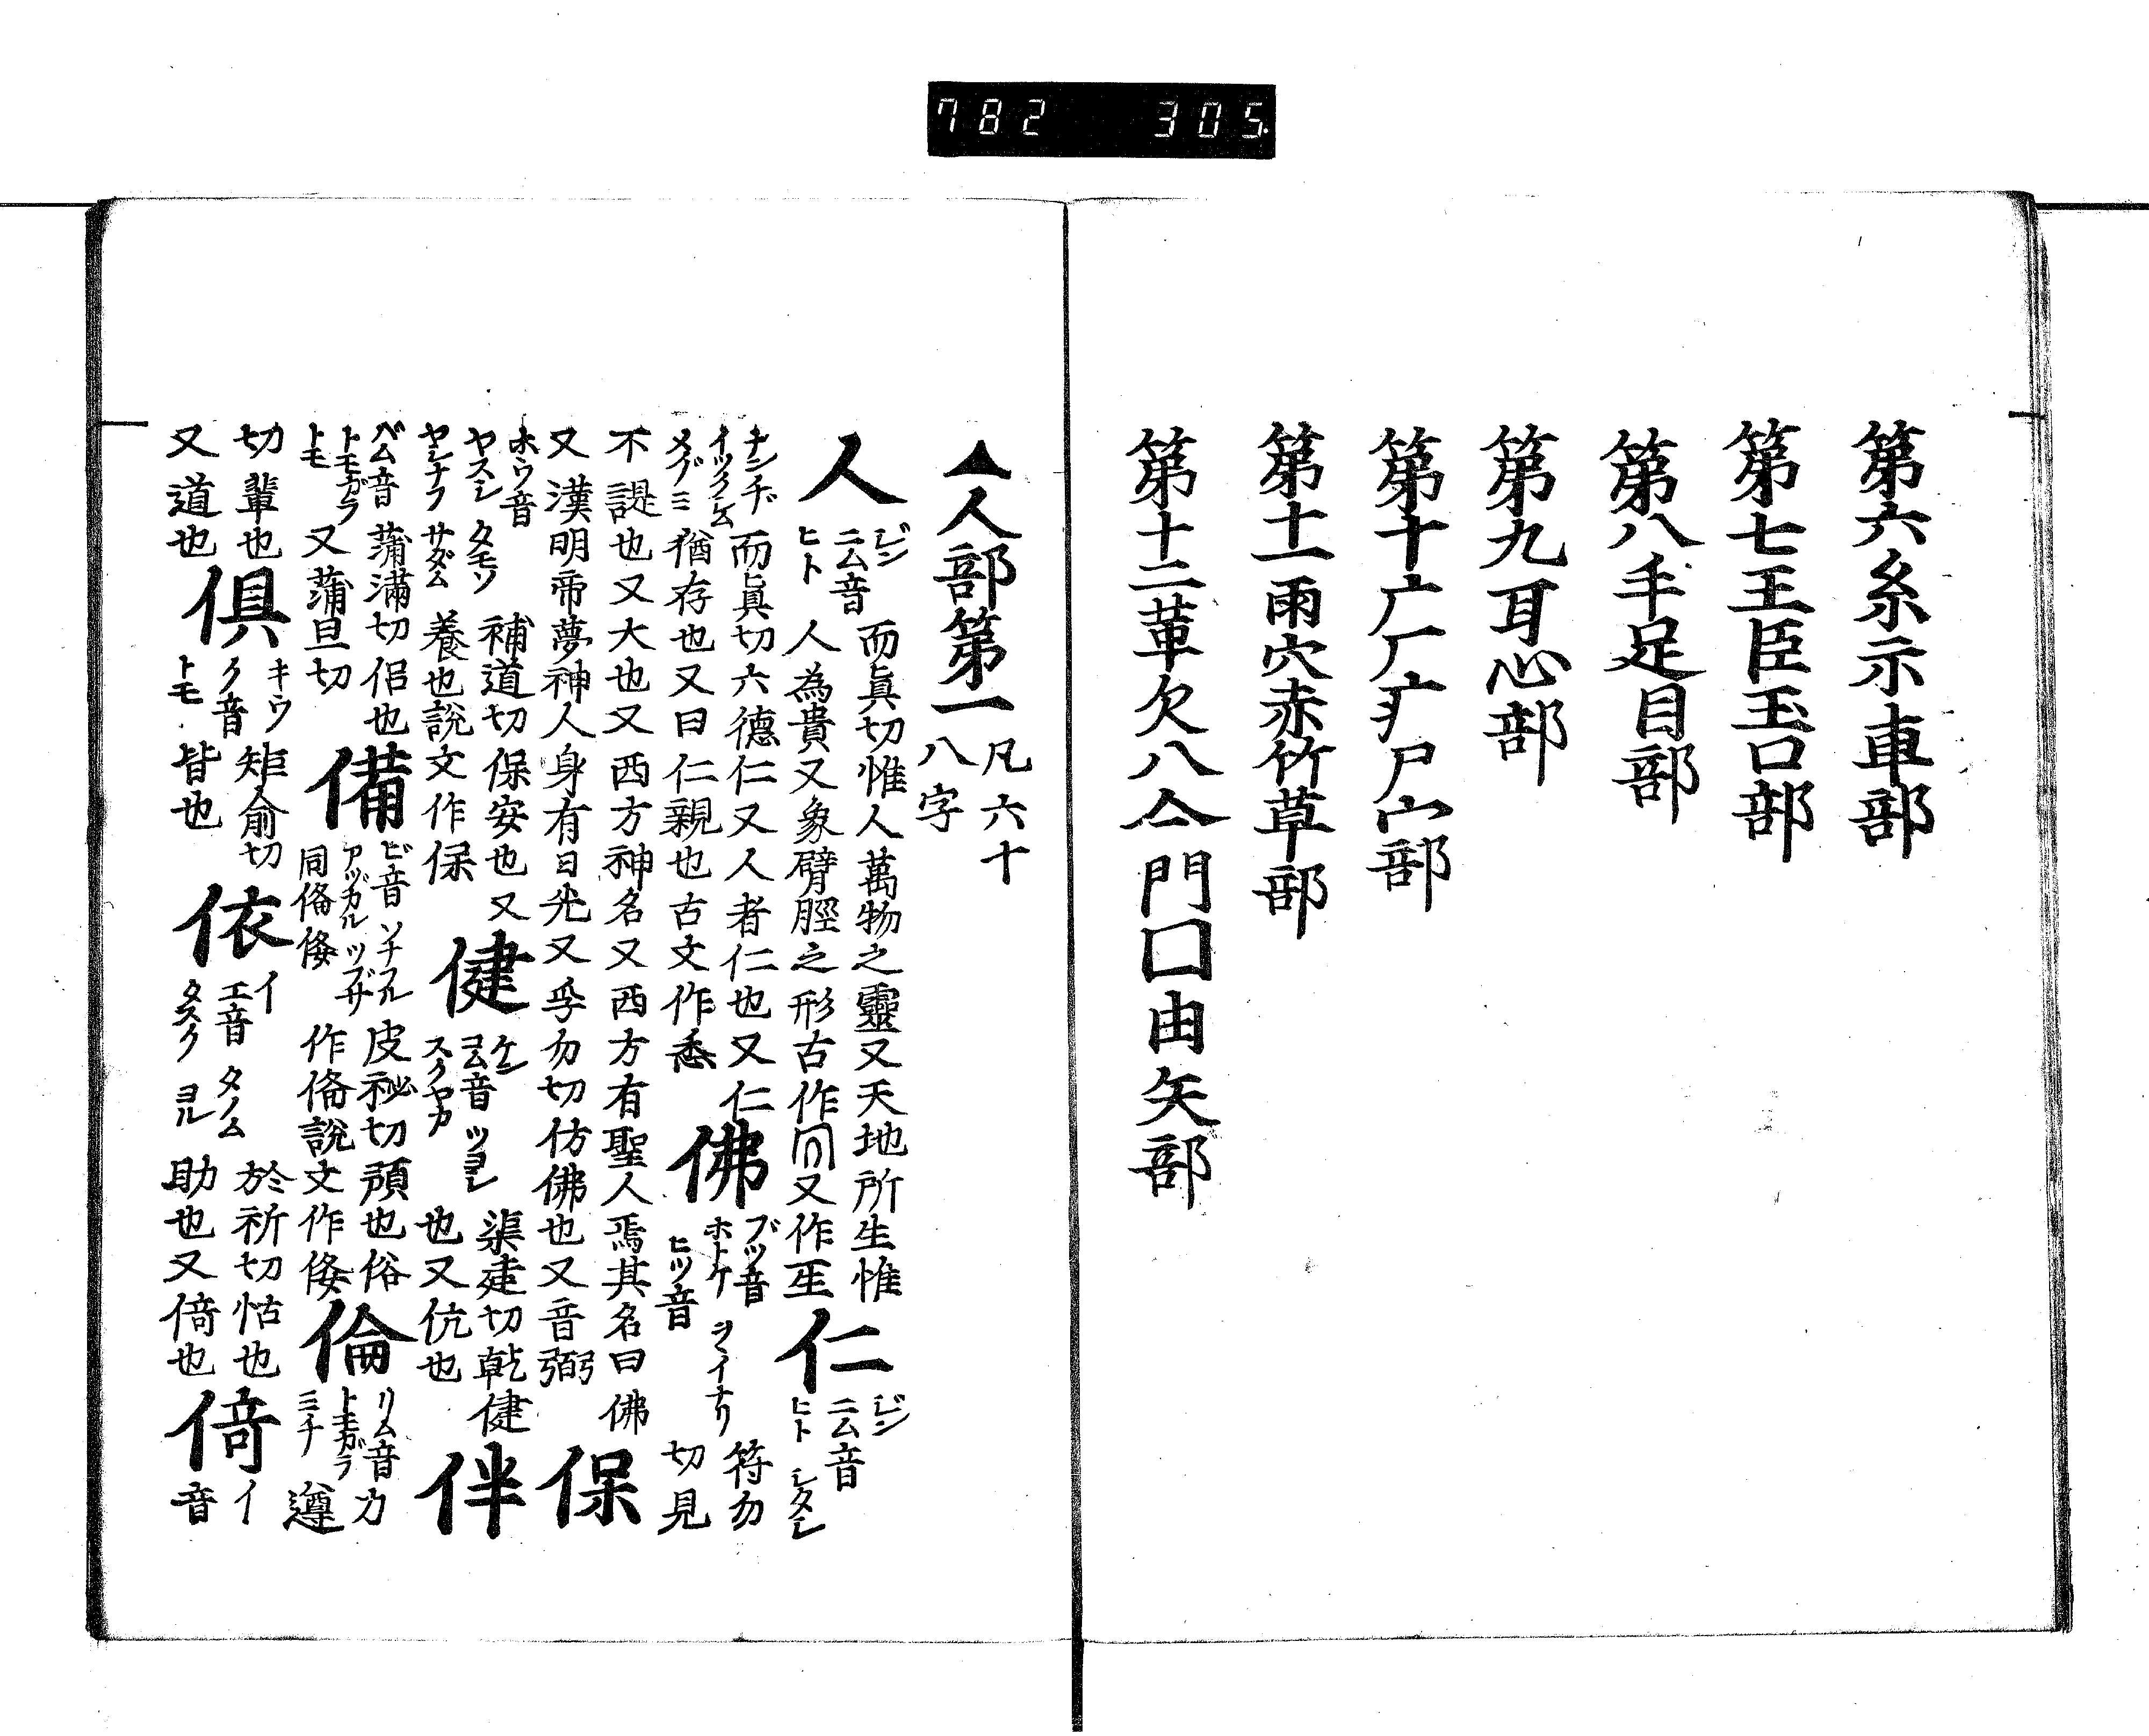 782 305
第六糸示車部
第七王臣玉口部
第八手足目部
第九耳心部
第十广厂疒尸宀部
第十一雨穴赤竹草部
第十二革欠八亼門囗由矢部
▲人部第一 凡六十八字
人 ジン ニム音 ヒト 而眞切惟人萬物之靈又天地所生惟人為貴又象臂脛之形古作又作𤯔 仁 ジン ニム音 ヒト シタシ
ナンヂ イツクシム メグミ 而眞切六德仁又人者仁也又仁猶存也又曰仁親也古文作 佛 ブツ音 ホトケ ヒツ音 ヲヽイナリ 符勿切見
不諟也又大也又西方神名又西方有聖人焉其名曰佛又漢明帝夢神人身有日光又孚勿切仿佛也又音弼 保
ホウ音 ヤスシ タモツ ヤシナフ サダム 補道切保安也又養也說文作𠈃 健 ケン コム音 ツヨシ スクヤカ 渠建切乾健也又伉也 伴
バム音 トモガラ トモ 蒲滿切侶也又蒲旦切 備 ビ音 ソナフル アヅカル ツブサ 同俻㑡 皮祕切預也俗作俻說文作㑡 倫 リム音 トモガラ ミチ 力遵
切輩也又道也 俱 キウ ク音 トモ 矩俞切皆也 依 イ エ音 タノム タスク ヨル 於祈切怙也助也又倚也 倚 イ音